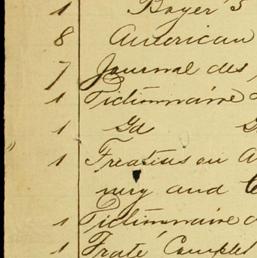 1 Boyer's
8 American
7 Journal des
1 Dictionnaire
1 Gd
1 Treatius on A
ury and
1 Dictionnaire d
1 Traté Complet